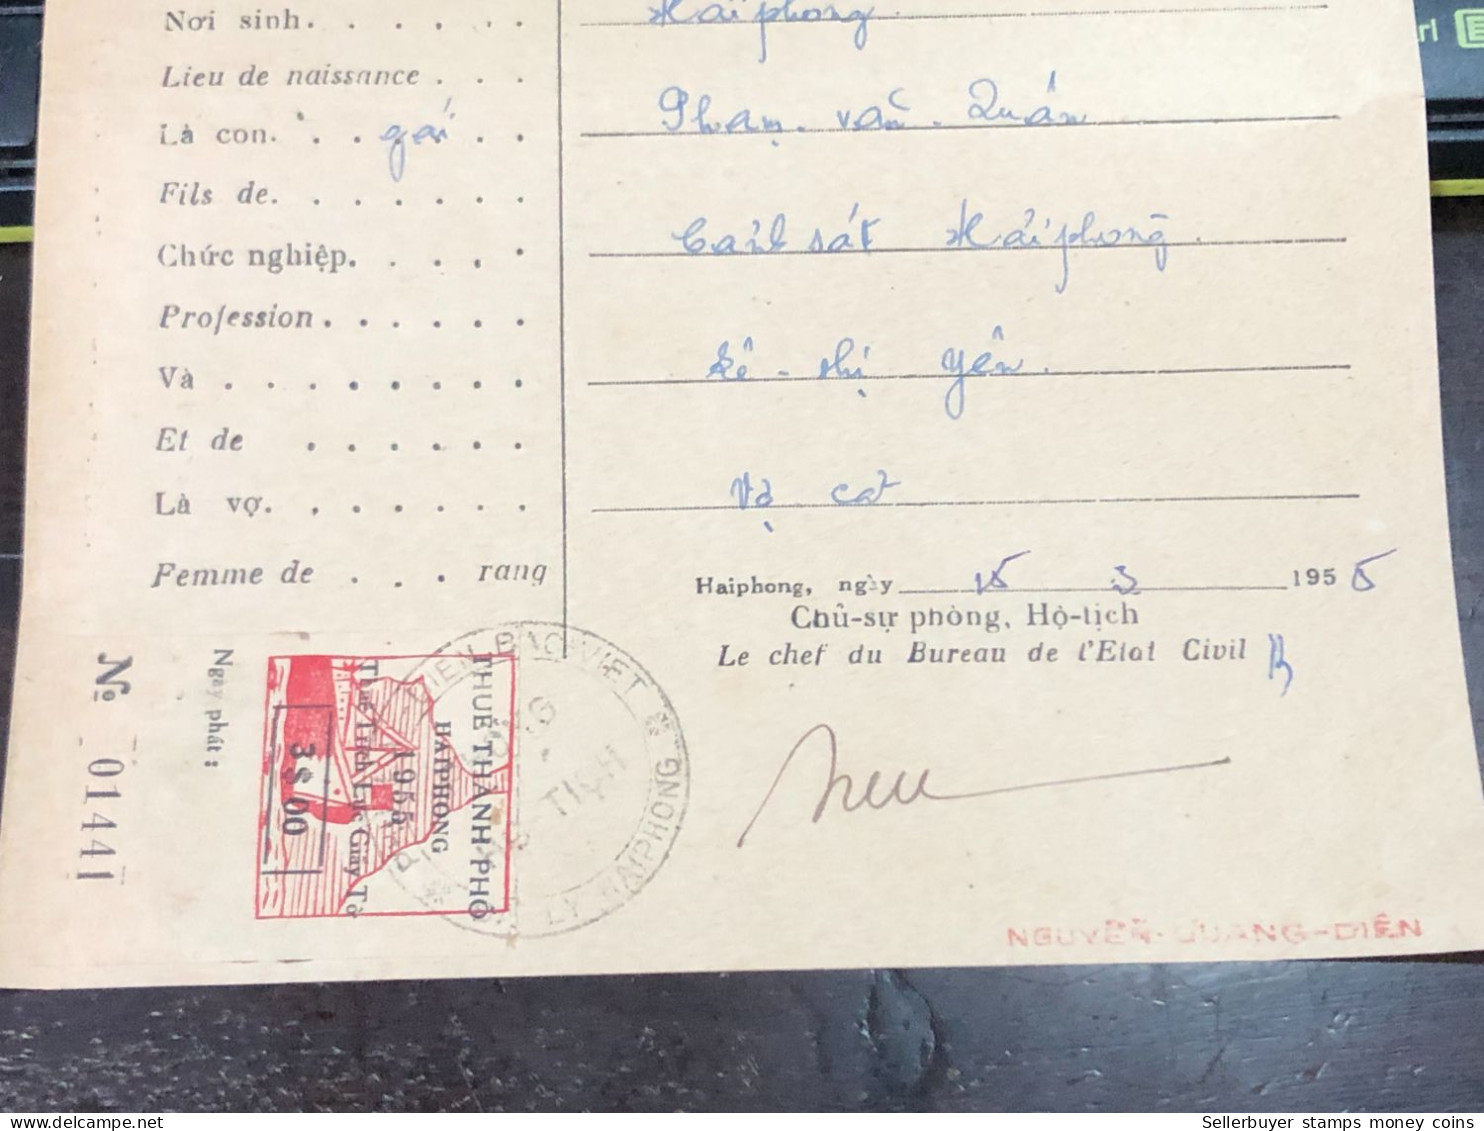 Nơi sinh. . . . . . . Haiphong.
Lieu de naissance . . .
Là con. . . gái . . Phạm. văn. Quán
Fils de. . . . . . . .
Chức nghiệp. . . . . . Cảnh sát Hải phòng.
Profession . . . . . .
Và . . . . . . . . Lê - thị Yên.
Et de . . . . . .
Là vợ. . . . . . . . Vợ cả
Femme de . . . rang
Haiphong, ngày 15 3 1955
Chủ-sự phòng, Hộ-tịch
Le chef du Bureau de l'Etat Civil
Nº 01441
Ngày phát :
THUẾ THÀNH PHỐ
HAIPHONG
1955
Thuế Trích Lục Giấy Tờ
3$00
BAC VIET
HỘ-TỊCH
LY HAIPHONG
NGUYỄN-QUANG-DIỆN
Sellerbuyer stamps money coins